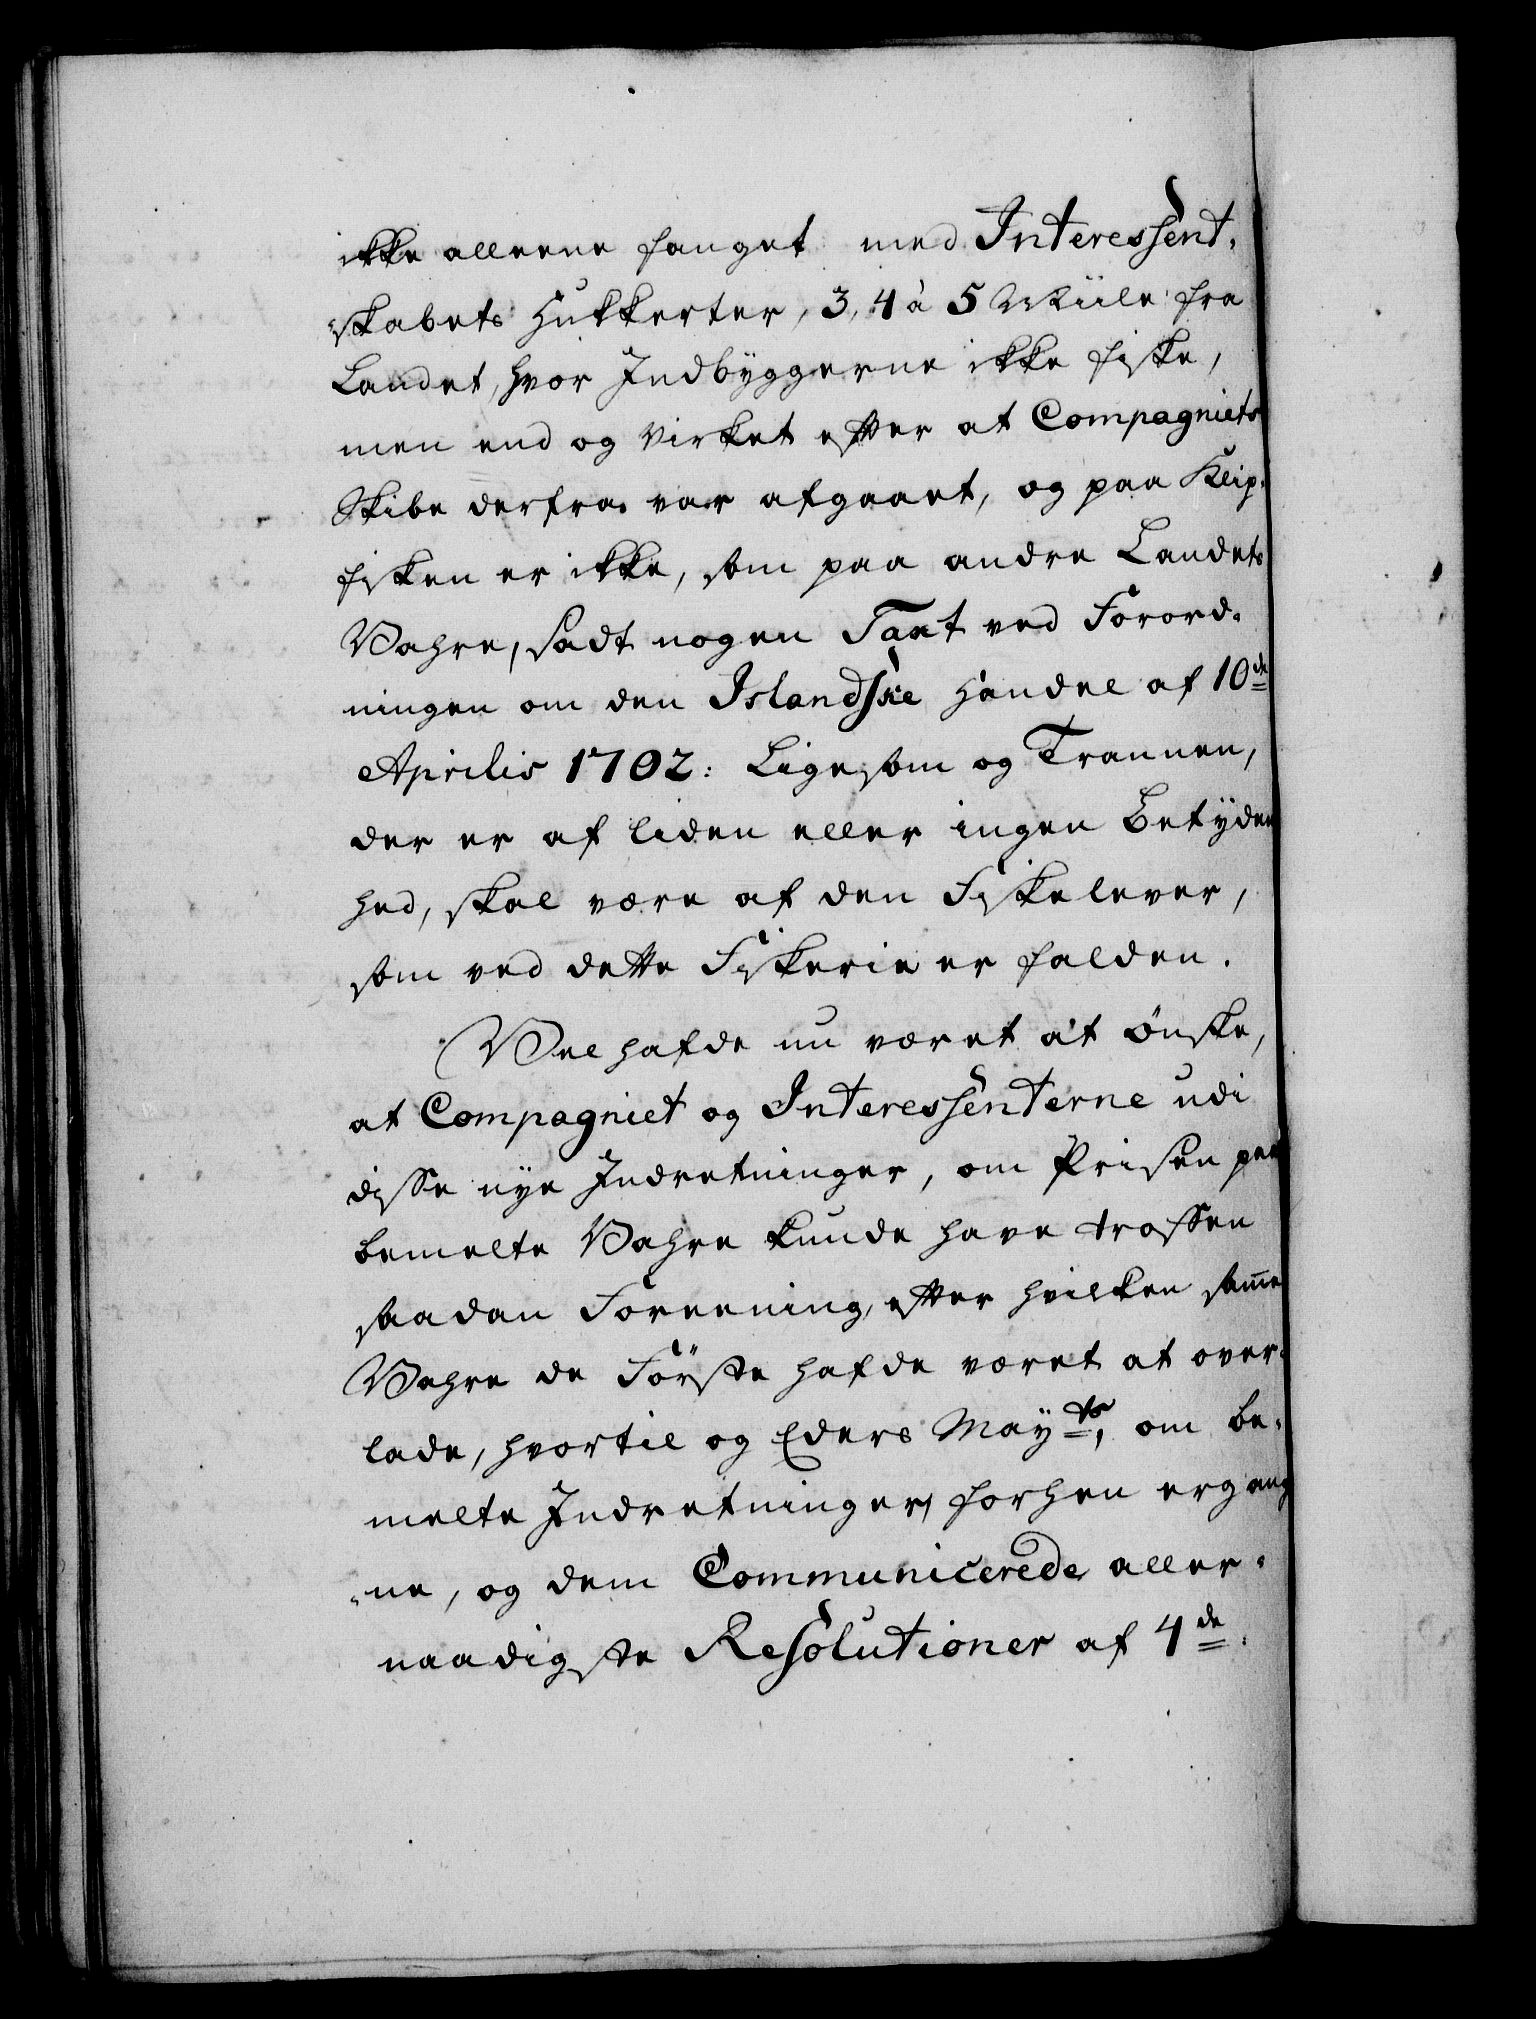 ikke alleene fanget med Interessent-
skabets Hukkerter, 3, 4 à 5 Miile fra
Landet, hvor Indbyggerne ikke fiske,
men end og virket efter at Compagniets
Skibe derfra var afgaaet, og paa Klip-
fisken er ikke, som paa andre Landets
Vahre, sadt nogen Taxt ved Forord-
ningen om den Islandske Handel af 10de
Aprilis 1702: Ligesom og Trannen,
der er af liden eller ingen Betyden
hed, skal være af den Fiskelever,
som ved dette Fiskerie er falden.
Vel hafde nu været at ønske,
at Compagniet og Interessenterne udi
disse nye Indretninger, om Prisen paa
bemelte Vahre kunde have traffen
saadan Foreening, efter hvilken samme
Vahre de Første hafde været at over-
lade, hvortil og Eders Mayts, om be-
melte Indretninger, forhen ergang
ne, og dem Communicerede aller-
naadigste Resolutioner af 4de